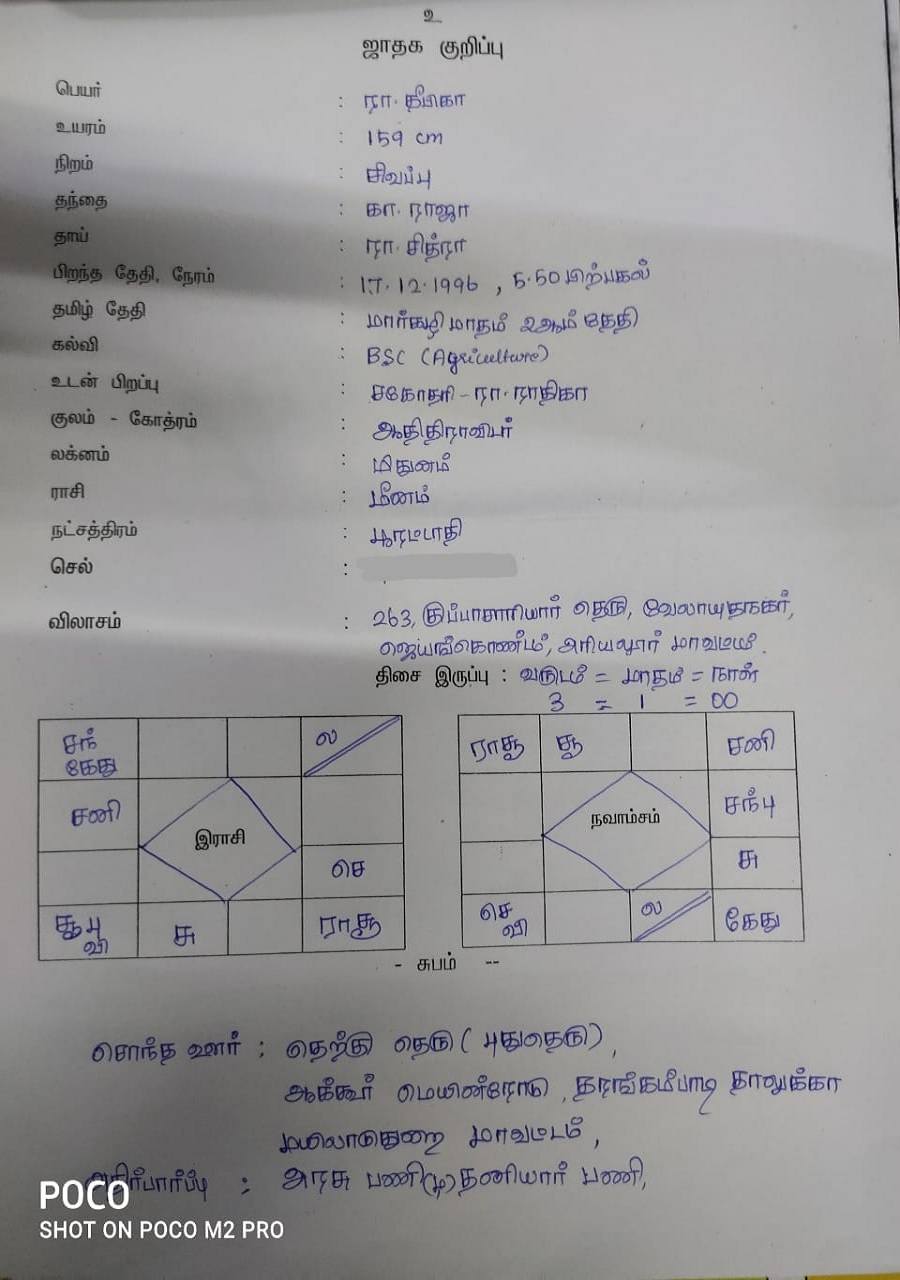 உ
ஜாதக குறிப்பு
பெயர் : ரா. தீபிகா
உயரம் : 159 cm
நிறம் : சிவப்பு
தந்தை : கா. ராஜா
தாய் : ரா. சித்ரா
பிறந்த தேதி, நேரம் : 17.12.1996 , 5.50 பிற்பகல்
தமிழ் தேதி : மார்கழி மாதம் 2ஆம் தேதி
கல்வி : BSC (Agriculture)
உடன் பிறப்பு : சகோதரி - ரா. ராதிகா
குலம் - கோத்ரம் : ஆதிதிராவிடர்
லக்னம் : மிதுனம்
ராசி : மீனம்
நட்சத்திரம் : பூரட்டாதி
செல் :
விலாசம் : 263, தெரு, வேலாயுதநகர்,
ஜெயங்கொண்டம், அரியலூர் மாவட்டம்.
திசை இருப்பு : வருடம் = மாதம் = நாள்
3 = 1 = 00
சந் கேது ல
சனி
இராசி
செ
சூ பு வி சு ராகு
ராகு சூ சனி
சந் பு
நவாம்சம்
சு
செ வி ல கேது
- சுபம் --
சொந்த ஊர் : தெற்கு தெரு (புதுதெரு),
ஆக்கூர் மெயின்ரோடு, தரங்கம்பாடி தாலுக்கா
மயிலாடுதுறை மாவட்டம்,
எதிர்பார்ப்பு : அரசு பணி (மு) தனியார் பணி,
POCO
SHOT ON POCO M2 PRO